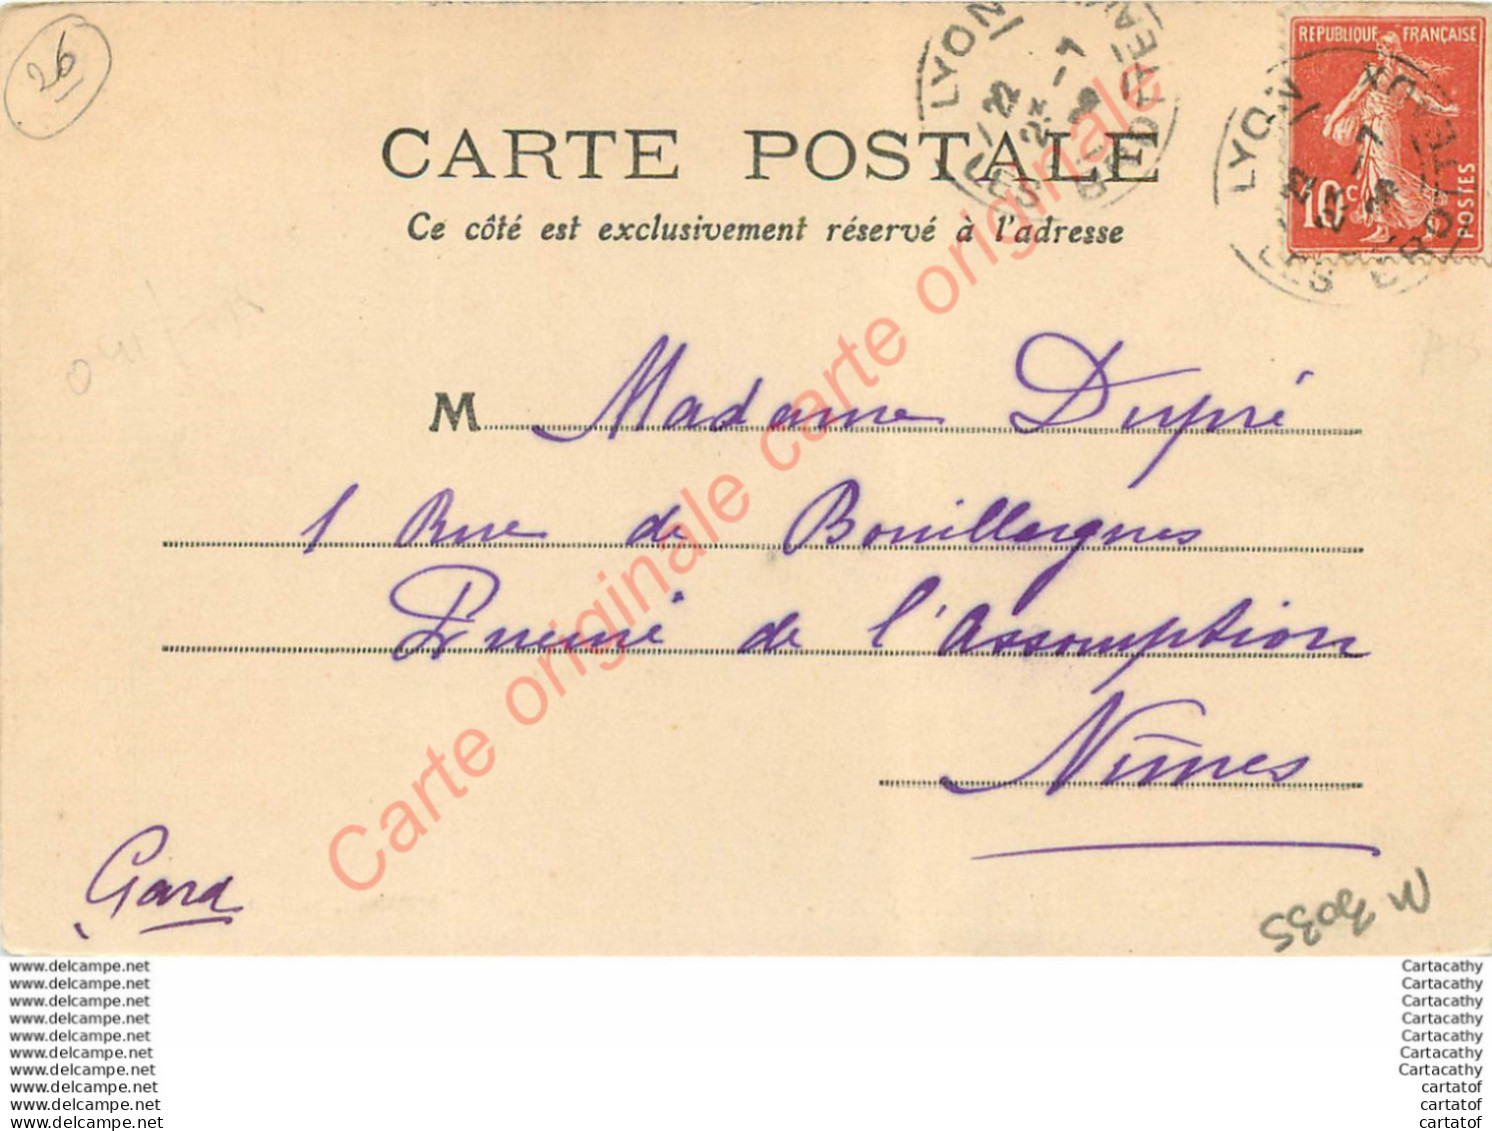 26
CARTE POSTALE
Ce côté est exclusivement réservé à l'adresse
LYON
LES BROTTEAUX
22
23 -7
LYON
LES BROTTEAUX
22
23 -7
REPUBLIQUE FRANÇAISE
10c
POSTES
M Madame Dupré
1 Rue de Bouillargues
de l'Assomption
Nîmes
Gard
Carte originale carte originale
www.delcampe.net
www.delcampe.net
www.delcampe.net
www.delcampe.net
www.delcampe.net
www.delcampe.net
www.delcampe.net
www.delcampe.net
www.delcampe.net
www.delcampe.net
Cartacathy
Cartacathy
Cartacathy
Cartacathy
Cartacathy
Cartacathy
Cartacathy
cartatof
cartatof
cartatof